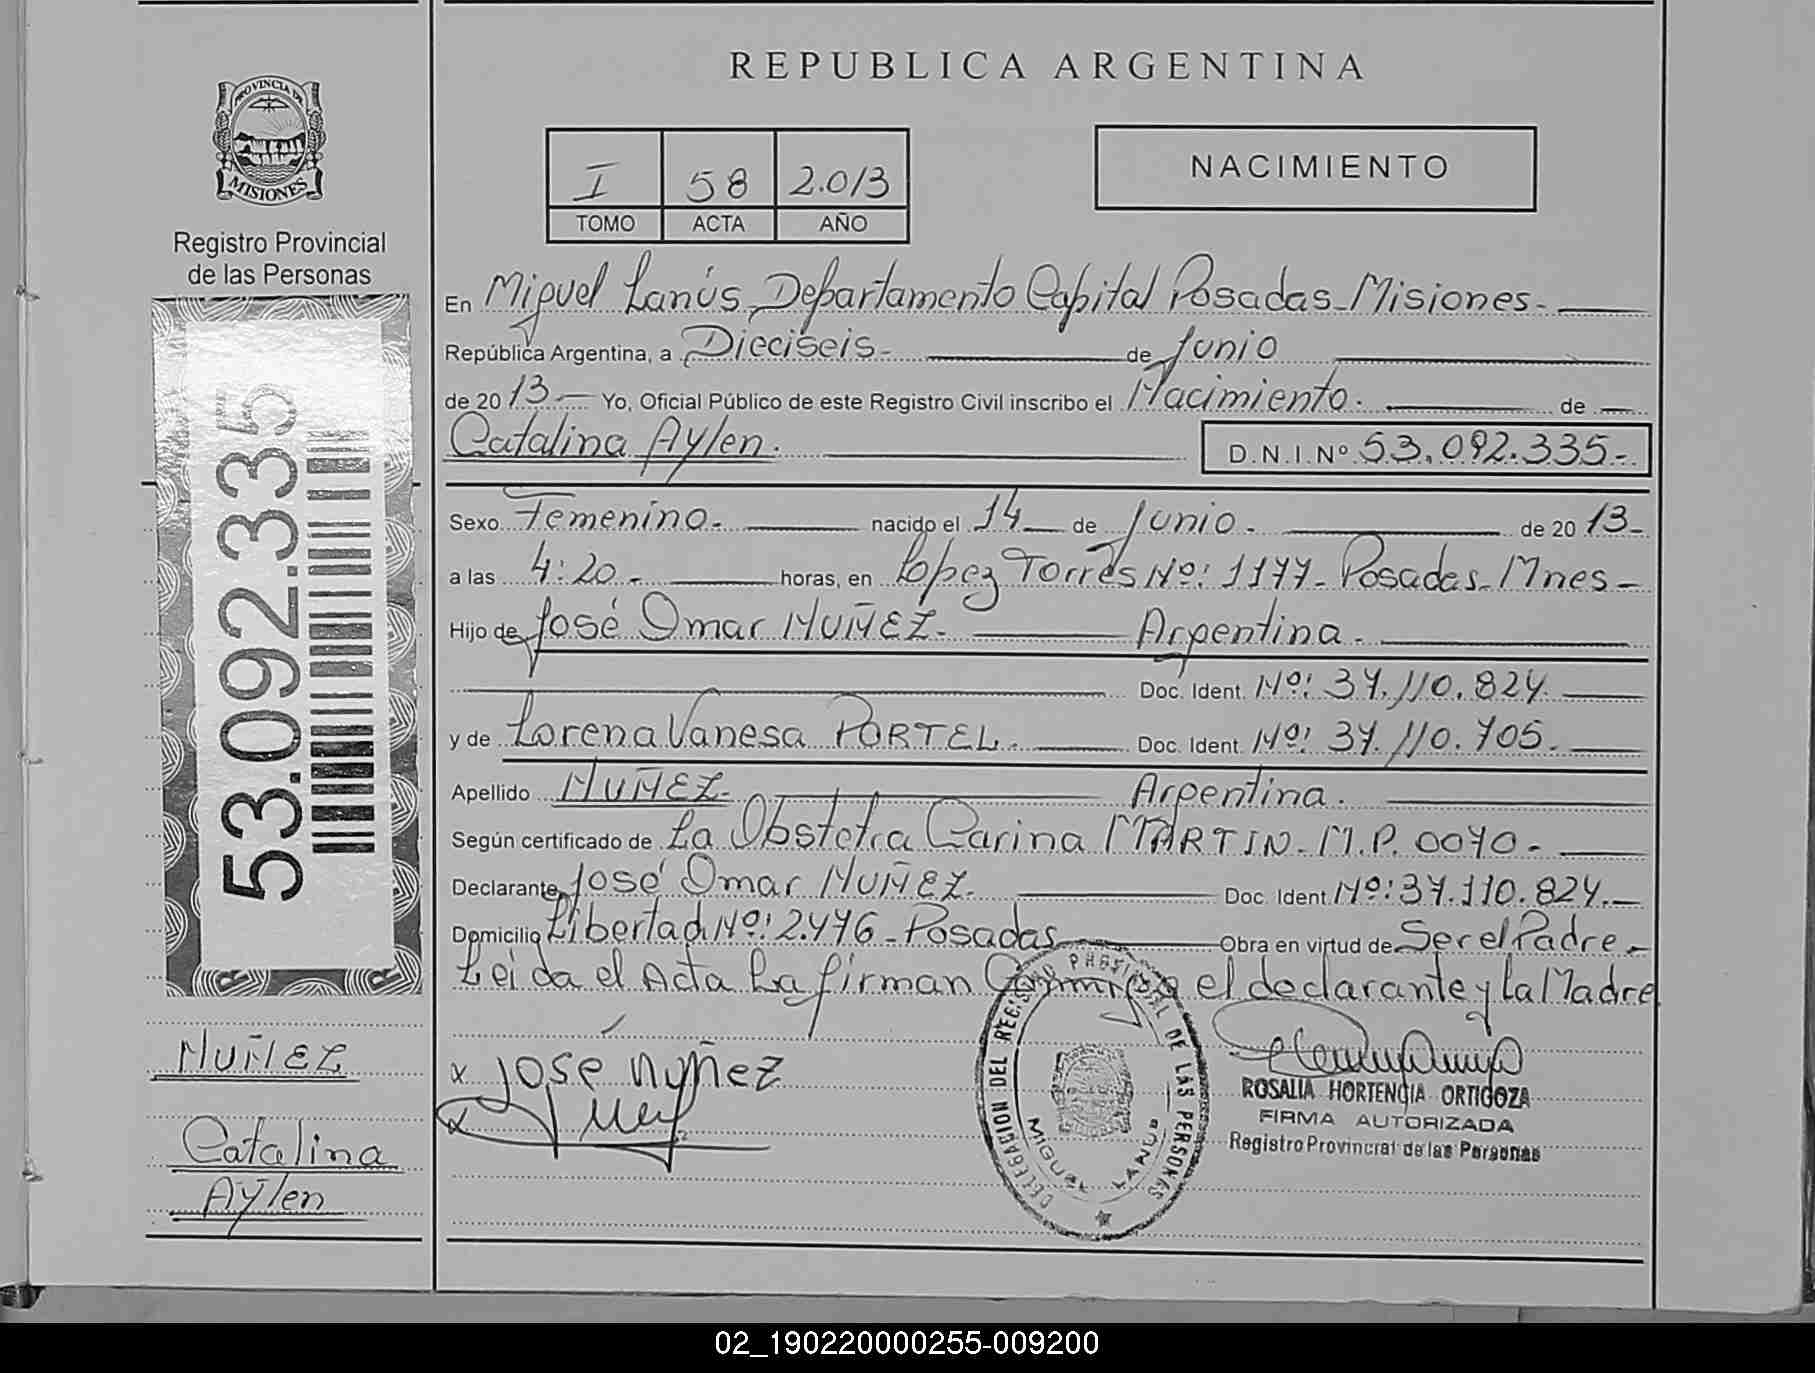 REPUBLICA ARGENTINA
PROVINCIA DE
MISIONES
Registro Provincial
de las Personas
53.092.335
I 58 2.013
TOMO ACTA AÑO
NACIMIENTO
En Miguel Lanús, Departamento Capital Posadas_Misiones-
República Argentina, a Dieciseis- de Junio
de 20 13- Yo, Oficial Público de este Registro Civil inscribo el Nacimiento. de
Catalina Aylen. D.N.I.Nº 53.092.335-
Sexo Femenino- nacido el 14 de Junio. de 20 13-
a las 4:20- horas, en Lopez Torres Nº: 1177- Posadas-Mnes-
Hijo de José Omar NUÑEZ- Argentina.
Doc. Ident. Nº: 37.110.824.
y de Lorena Vanesa PORTEL. Doc. Ident. Nº: 37.110.705.
Apellido NUÑEZ- Argentina.
Según certificado de La Obstetra Carina MARTIN- M.P. 0070-
Declarante José Omar NUÑEZ. Doc. Ident. Nº: 37.110.824.
Domicilio Libertad Nº: 2.776-Posadas Obra en virtud de Ser el Padre-
Leida el Acta La firman Conmigo el declarante y La Madre
x José Nuñez
x
DELEGACION DEL REGISTRO PROVINCIAL DE LAS PERSONAS
MIGUEL LANUS
ROSALIA HORTENCIA ORTIGOZA
FIRMA AUTORIZADA
Registro Provincial de las Personas
NUÑEZ
Catalina
Aylen
02_190220000255-009200